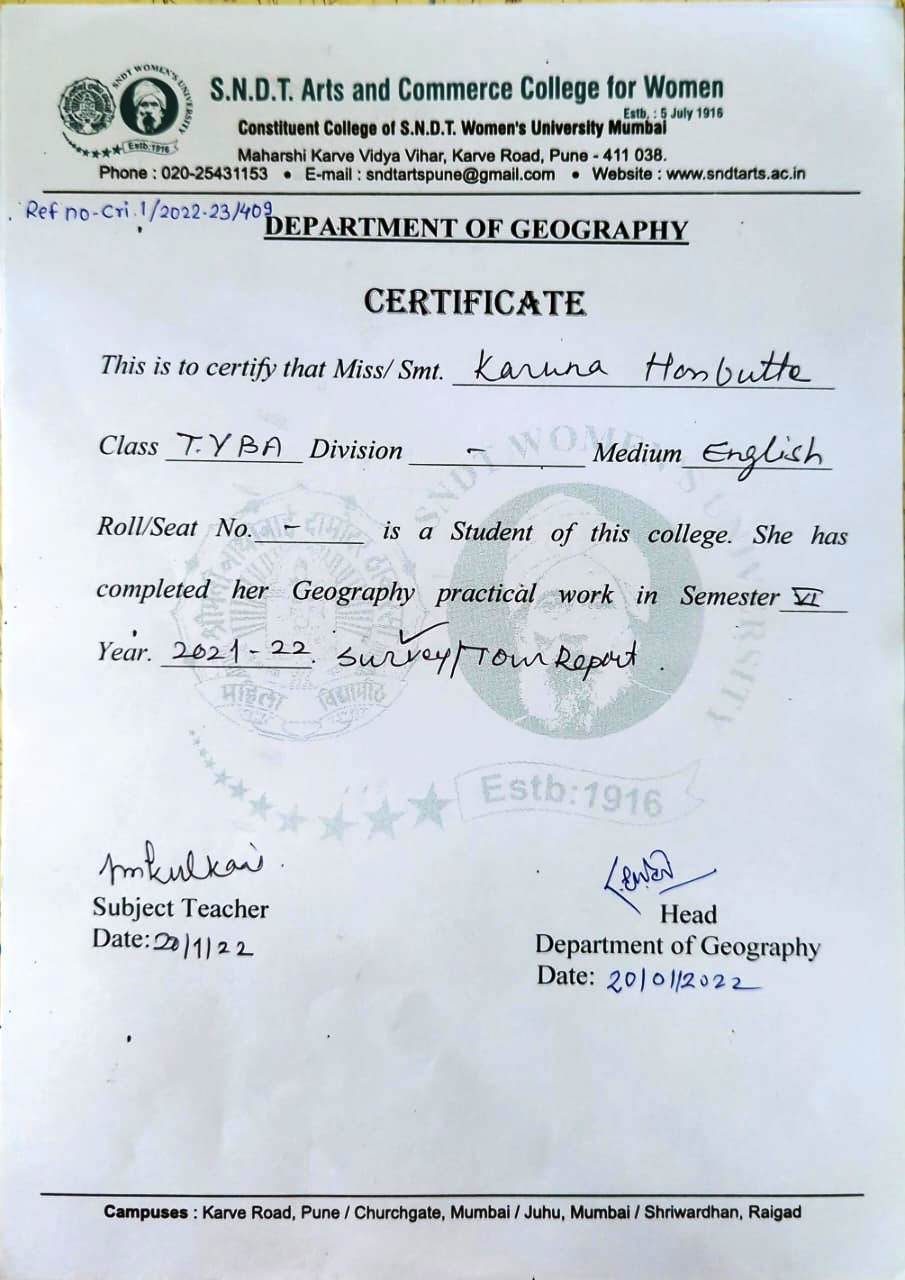 SNDT WOMEN'S UNIVERSITY
Estb:1916
S.N.D.T. Arts and Commerce College for Women
Estb. : 5 July 1916
Constituent College of S.N.D.T. Women's University Mumbai
Maharshi Karve Vidya Vihar, Karve Road, Pune - 411 038.
Phone : 020-25431153 • E-mail : sndtartspune@gmail.com • Website : www.sndtarts.ac.in
Ref no-Cri.1/2022-23/409
DEPARTMENT OF GEOGRAPHY
CERTIFICATE
This is to certify that Miss/ Smt. Karuna Honbutte
Class T.Y.B.A Division - Medium English
Roll/Seat No. - is a Student of this college. She has
completed her Geography practical work in Semester VI
Year. 2021-22. Survey/Tour Report.
SNDT WOMEN'S UNIVERSITY
महिला विद्यापीठ
Estb:1916
Subject Teacher
Date: 20/1/22
Head
Department of Geography
Date: 20/01/2022
Campuses : Karve Road, Pune / Churchgate, Mumbai / Juhu, Mumbai / Shriwardhan, Raigad